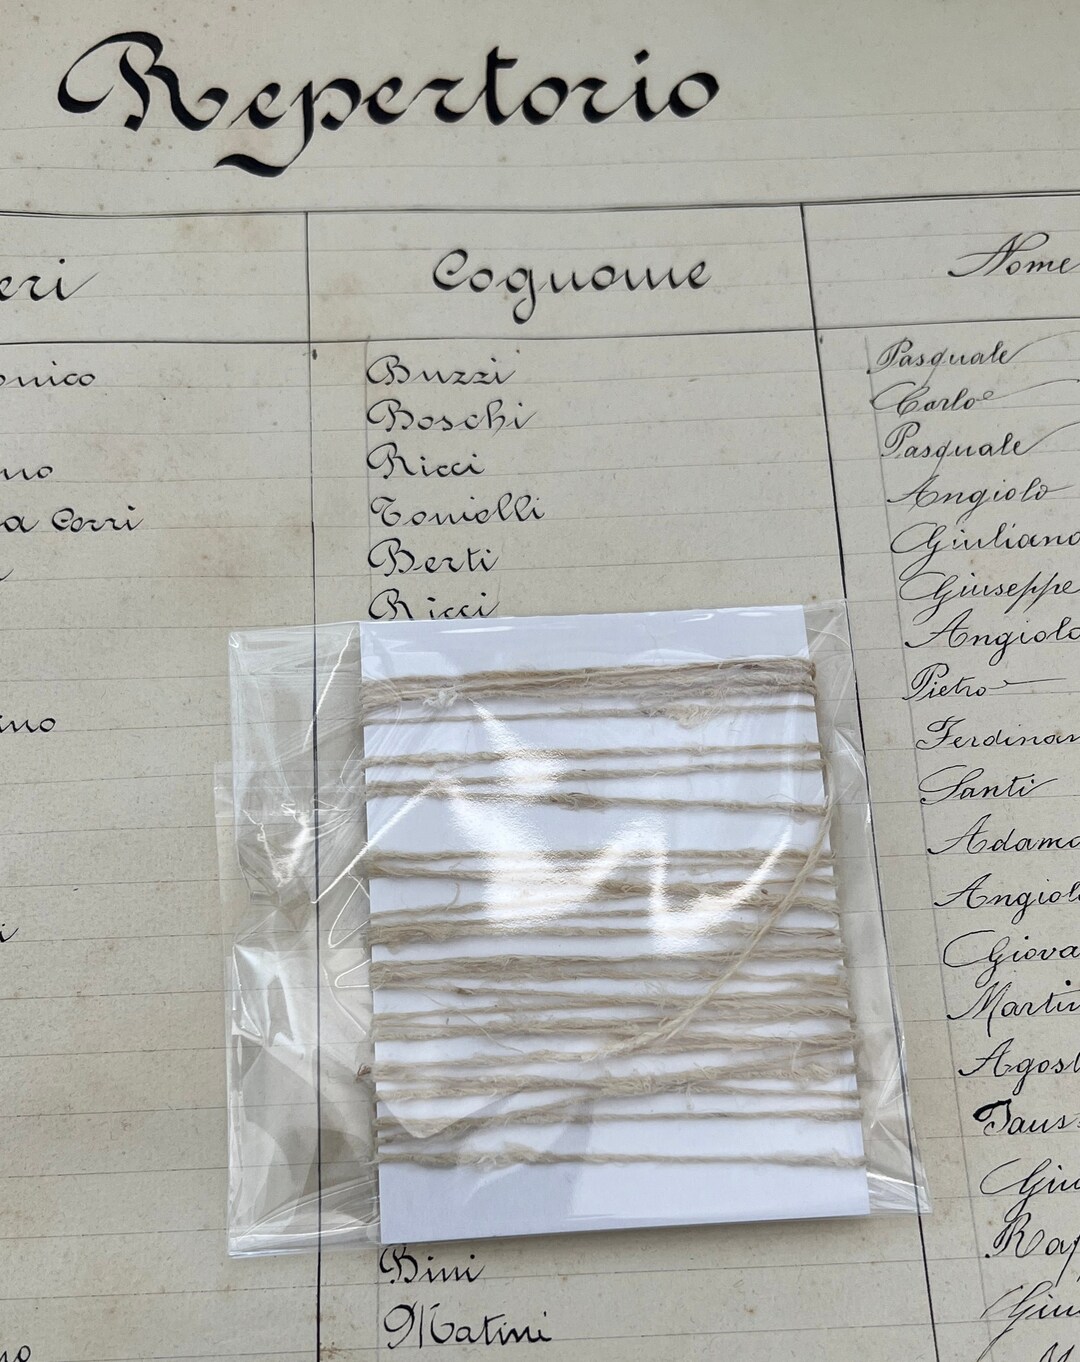 Repertorio
eri Cognome Nome
onico Buzzi Pasquale
Boschi Carlo
no Ricci Pasquale
a Cerri Tonielli Angiolo
Berti Giuliano
Ricci Giuseppe
Angiolo
ino Pietro
Ferdinan
Santi
Adamo
Angiolo
i Giova
Martin
Agost
Faus
Giu
Bini Raf
Matini Giu
no M